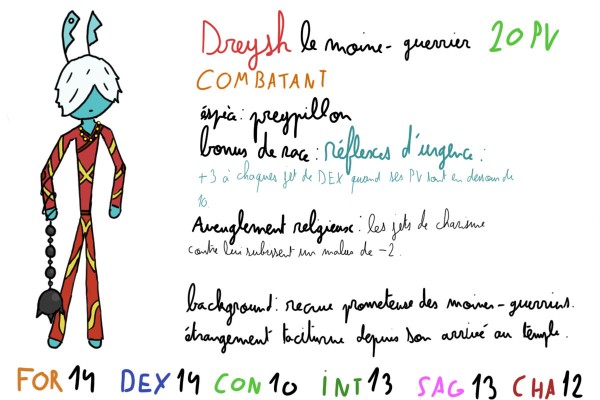 Dreysh le moine-guerrier 20 PV
COMBATANT
éspèce: preypillon
bonus de race: réflexes d'urgence:
+3 à chaques jet de DEX quand ses PV sont en dessous de
10.
Aveuglement religieux: les jets de charisme
contre lui subissent un malus de -2.
background: recrue prometeuse des moines-guerriers.
étrangement taciturne depuis son arrivé au temple.
FOR 14 DEX 14 CON 10 INT 13 SAG 13 CHA 12